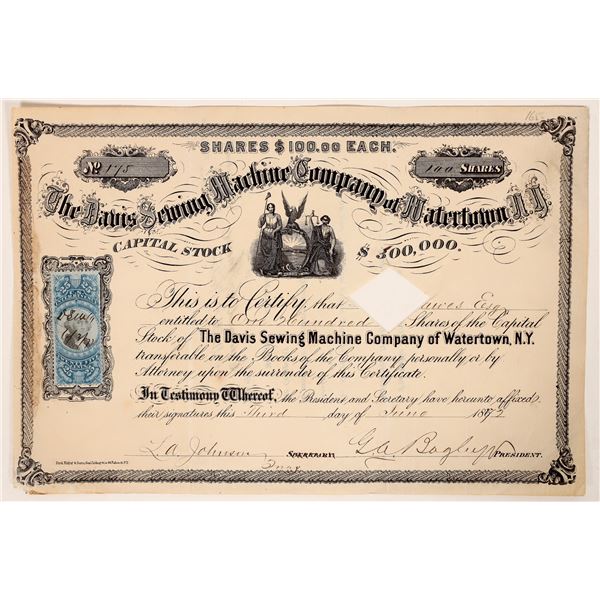 SHARES $100.00 EACH.
No 175
100 SHARES
The Davis Sewing Machine Company of Watertown N.Y.
CAPITAL STOCK $500,000.
This is to Certify, that Esq
entitled to One Hundred Shares of the Capital
Stock of The Davis Sewing Machine Company of Watertown, N.Y.
transferable on the Books of the Company personally or by
Attorney upon the surrender of this Certificate.
In Testimony Whereof, the President and Secretary have hereunto affixed
their signatures this Third day of June 1872
L.A. Johnson SECRETARY G.A. Bagley PRESIDENT.